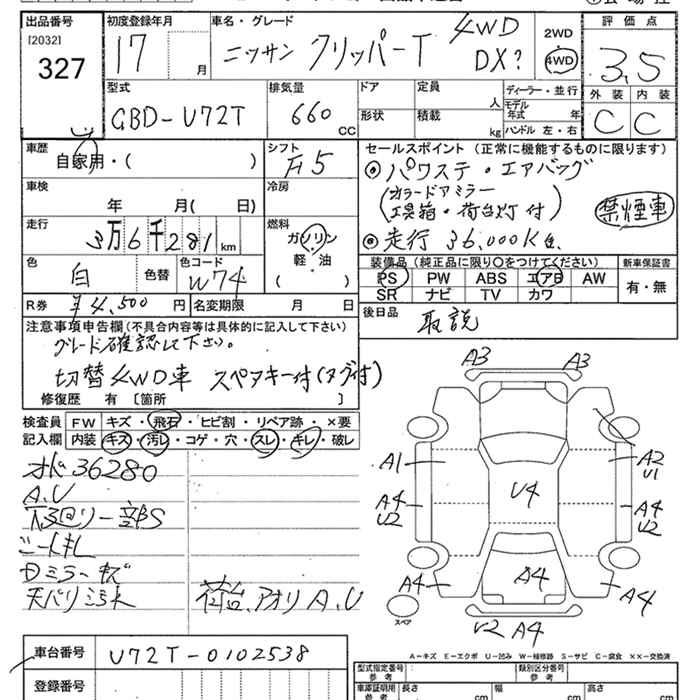 出品番号
[2032]
327
初度登録年月
17 月
車名・グレード
ニッサン クリッパーT 4WD
DX?
2WD
・
4WD
評価点
3.5
外装 内装
C C
型式
GBD-U72T
排気量
660 CC
ドア
形状
定員 人
積載 kg
ディーラー・並行
モデル
年式 年
ハンドル 左・右
車歴
自家用・( )
シフト
F5
セールスポイント (正常に機能するものに限ります)
◎パワステ・エアバッグ
(カラードアミラー
工具箱・荷台灯付)
禁煙車
◎走行 36,000K台
車検
年 月( 日)
冷房
走行
3万6千281km
燃料
ガソリン
軽・油
( )
色
白
色替
色コード
W74
装備品 (純正品に限り○をつけてください)
PS PW ABS エアB AW
SR ナビ TV カワ
新車保証書
有・無
R券 ¥4,500 円
名変期限 月 日
後日品
取説
注意事項申告欄(不具合内容等は具体的に記入して下さい)
グレード確認して下さい。
切替4WD車 スペアキー付(タグ付)
修復歴 有 〔箇所 〕
検査員
記入欄
FW キズ・飛石・ヒビ割・リペア跡・×要
内装 キズ・汚レ・コゲ・穴・スレ・キレ・破レ
オド36280
A.U
下回リ一部S
シートキレ
Dミラーキズ
天バリ汚れ
荷台、アオリA、U
A3 A3
A1
A2
U1
U4
A4
U2
A4
U2
A4
A4
A4
スペア
U2 A4
A-キズ E-エクボ U-凹み W-補修跡 S-サビ C-腐食 XX-交換済
車台番号
U72T-0102538
登録番号
型式指定番号
参考
類別区分番号
参考
車庫証明用
参考
長さ cm
幅 cm
高さ cm